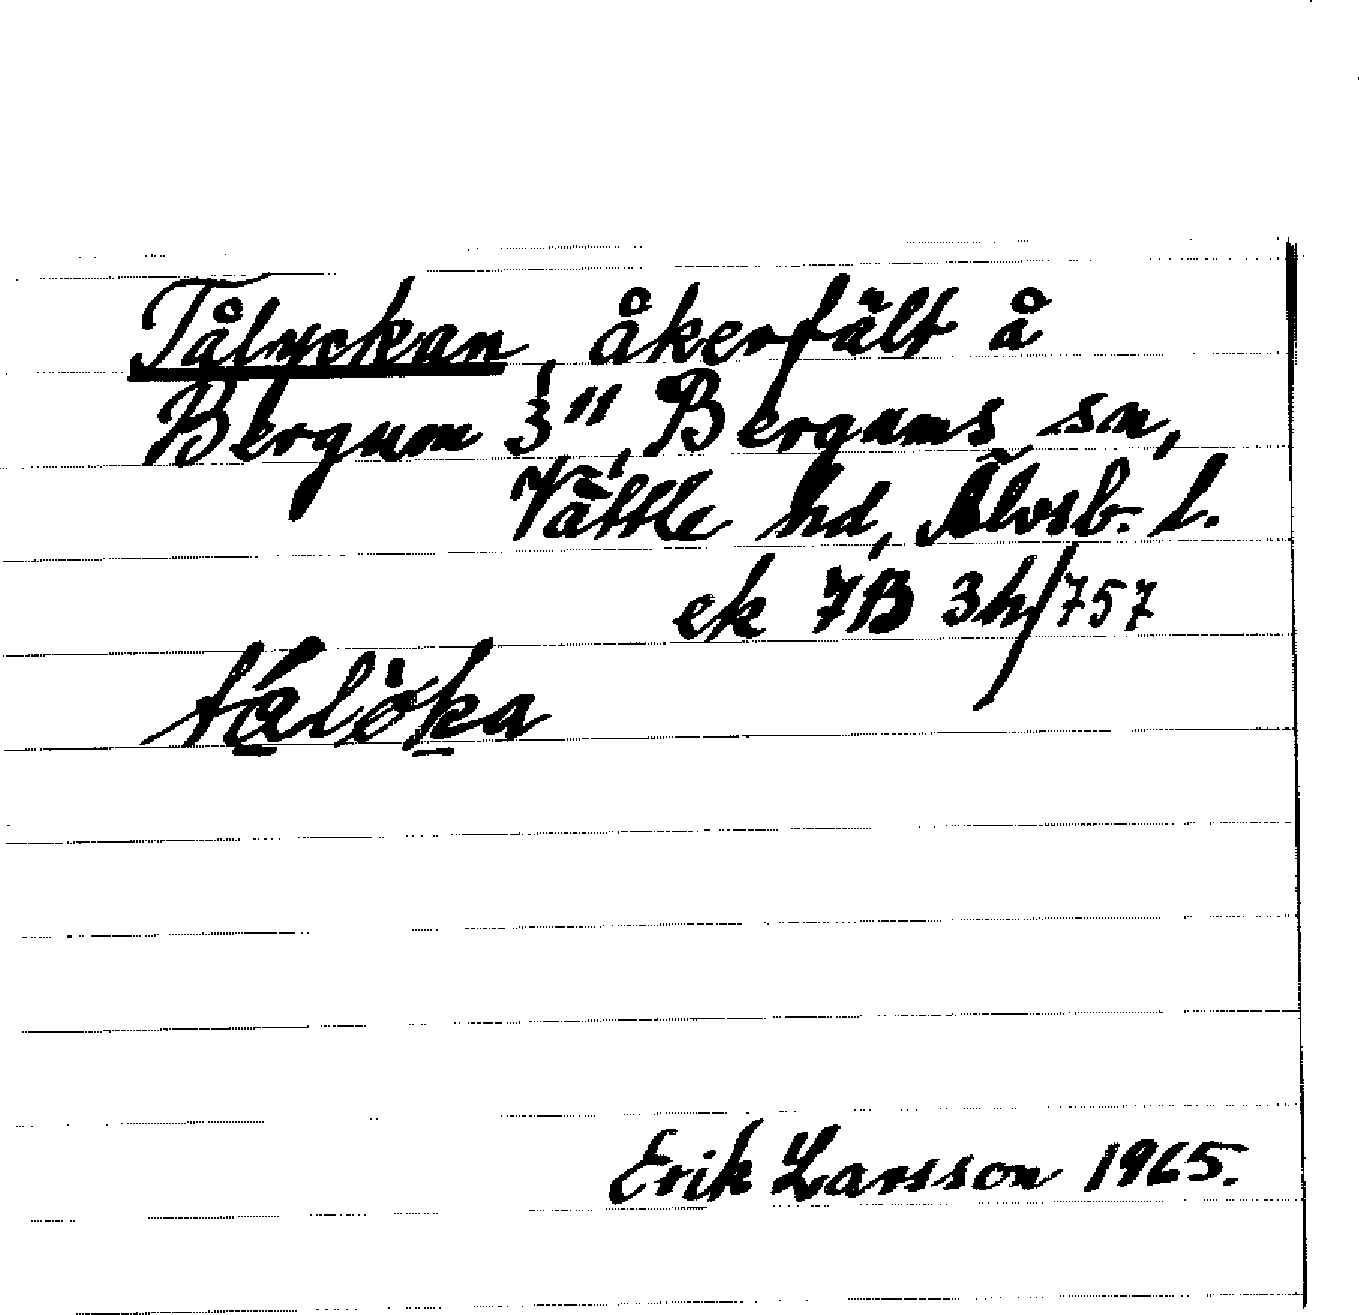 Tålyckan, åkerfält å
Bergum 3", Bergums sn,
Vättle hd, Älvsb. l.
ek 7B 3h/757
tálö̀ka
Erik Larsson 1965.